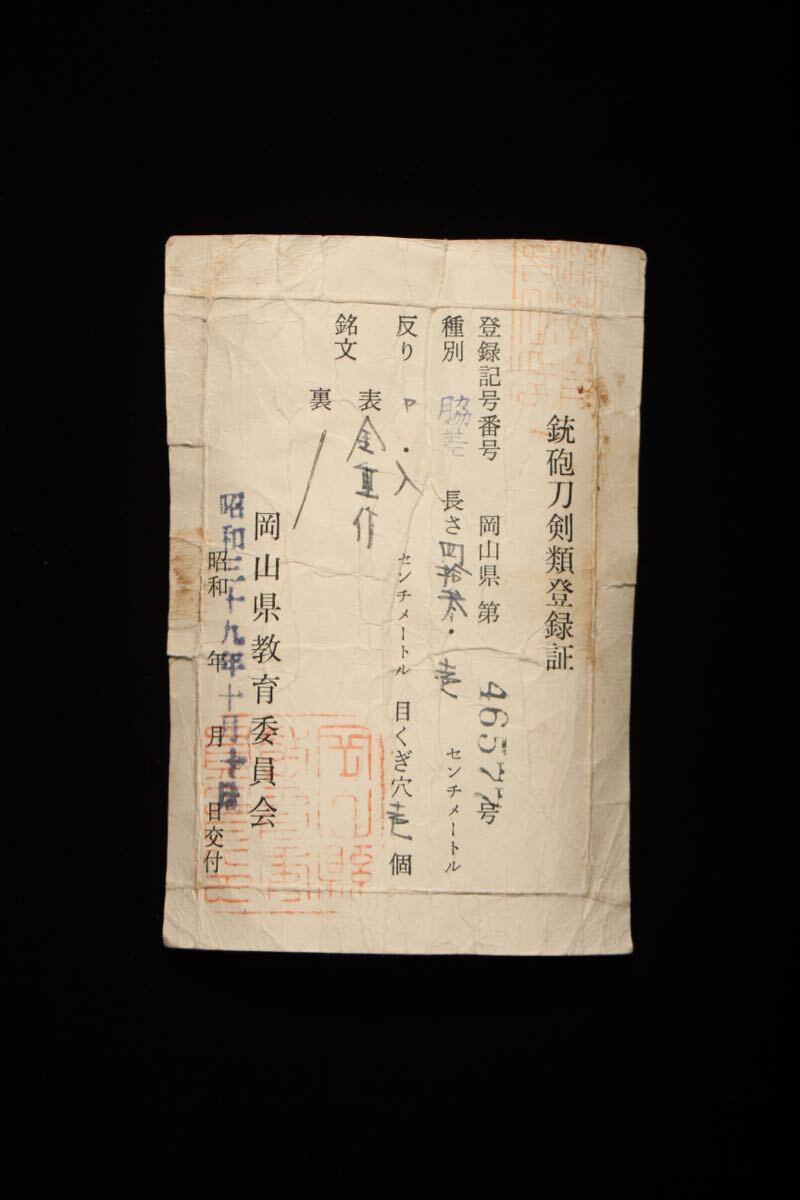 銃砲刀剣類登録証
登録記号番号 岡山県 第 46577号
種別 脇差 長さ 四拾 センチメートル
反り センチメートル 目くぎ穴 壱 個
銘文 表 金重作
裏
岡山県教育委員会
昭和三十九年十月十日
昭和 年 月 日交付